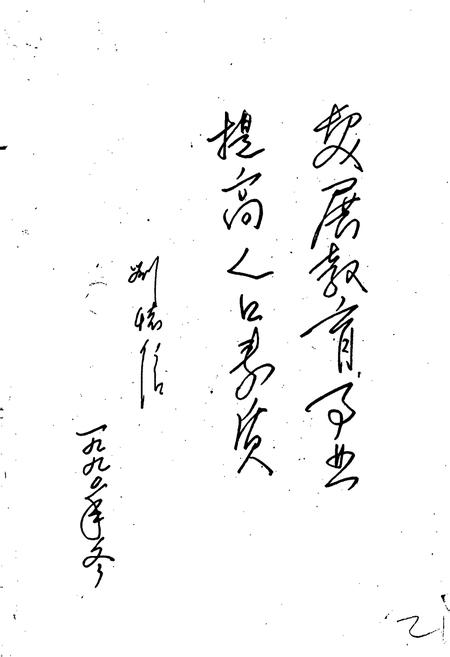 发展教育事业
提高人口素质
刘
信
一九九〇年冬